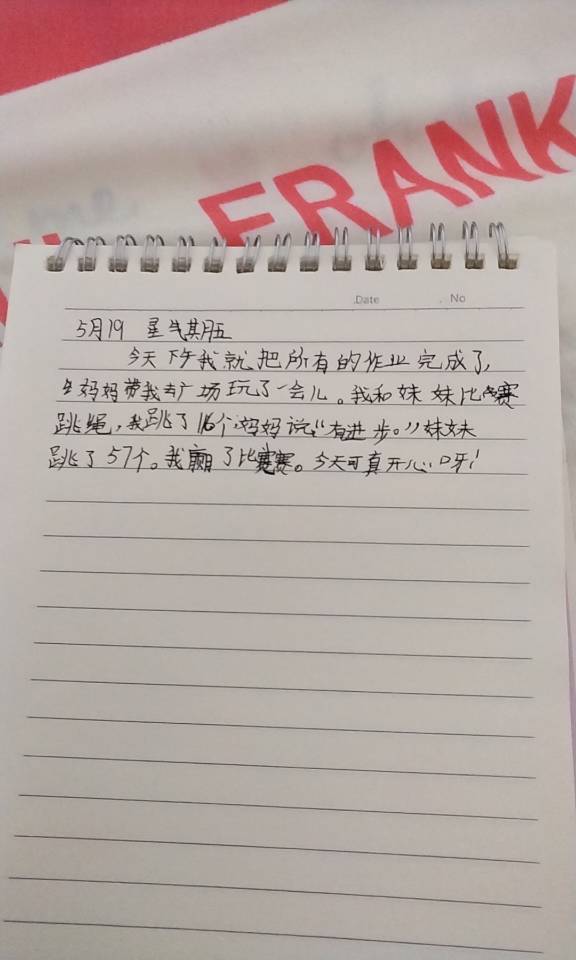 FRANK
Date No
5月19 星气其月五
今天下午我就把所有的作业完成了,
妈妈带我去广场玩了一会儿。我和妹妹比赛
跳绳,我跳了116个,妈妈说:“有进步。”妹妹
跳了57个。我赢了比赛。今天可真开心呀!